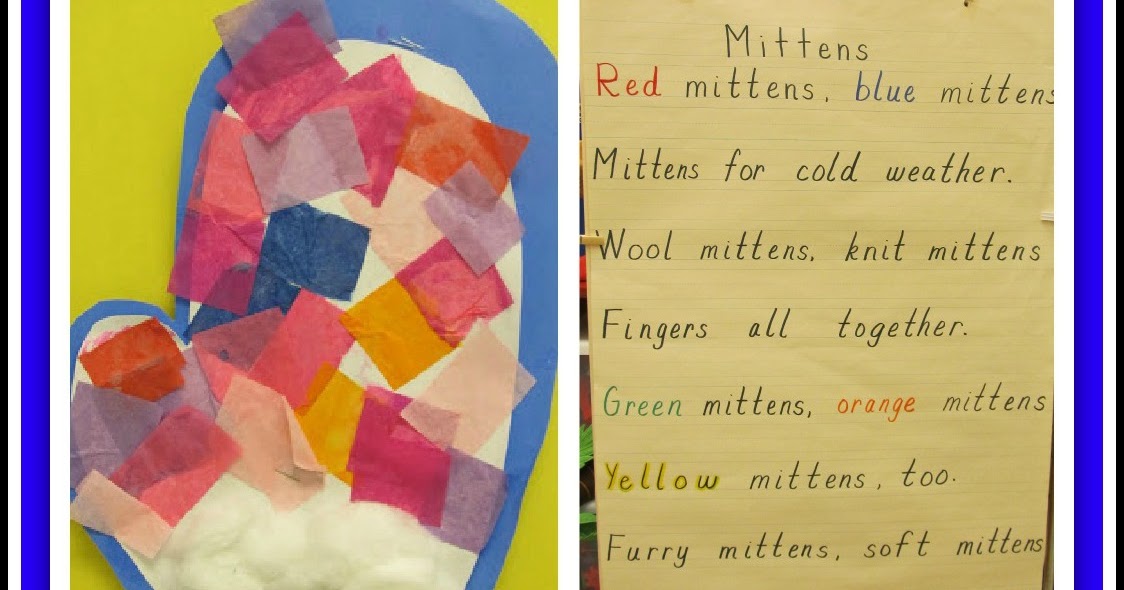 Mittens
Red mittens, blue mittens
Mittens for cold weather.
Wool mittens, knit mittens
Fingers all together.
Green mittens, orange mittens
Yellow mittens, too.
Furry mittens, soft mittens